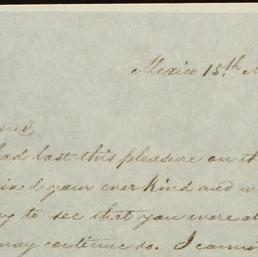 Mexico 15th
had last this pleasure on th
ived your ever kind and w
to see that you were al
may continue so. I canno